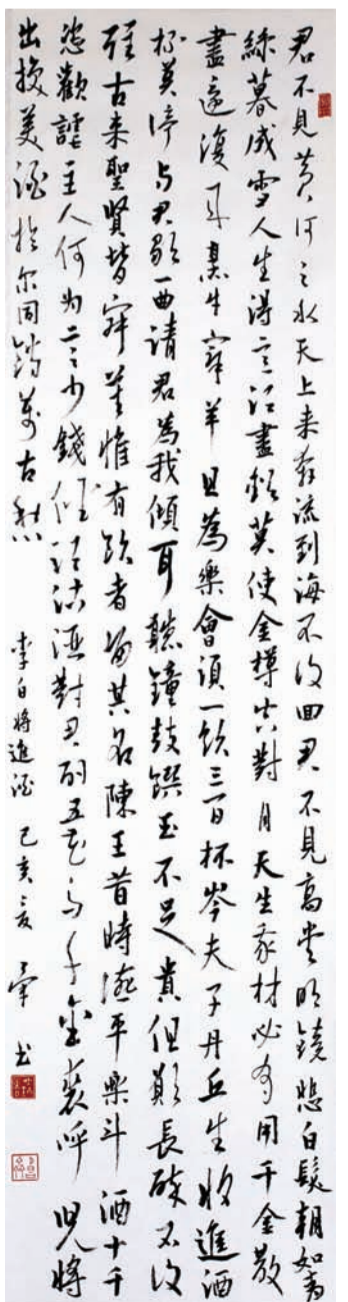 君不見黄河之水天上来奔流到海不復回君不見高堂明鏡悲白髮朝如青
絲暮成雪人生得意須盡歡莫使金樽空對月天生我材必有用千金散
盡還復来烹牛宰羊且為樂會須一飲三百杯岑夫子丹丘生將進酒
杯莫停与君歌一曲請君為我傾耳聽鐘鼓饌玉不足貴但願長醉不復
醒古来聖賢皆寂寞惟有飲者留其名陳王昔時宴平樂斗酒十千
恣歡謔主人何为言少錢径須沽酒對君酌五花馬千金裘呼兒將
出換美酒與尔同銷萬古愁
李白將進酒 己亥夏 書